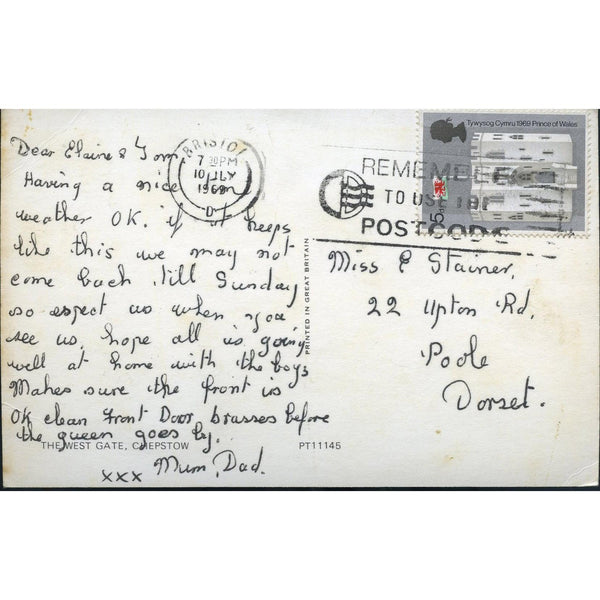 Dear Elaine & Tom,
Having a nice time
weather OK. if it keeps
like this we may not
come back till Sunday
so expect us when you
see us, hope all is going
well at home with the boys
Makes sure the front is
OK clean Front Door, brasses before
the queen goes by.
xxx Mum, Dad.
THE WEST GATE, CHEPSTOW
PT11145
PRINTED IN GREAT BRITAIN
BRISTOL
7 30PM
10 JLY
1969
D
REMEMBER
TO USE THE
POSTCODE
Tywysog Cymru 1969 Prince of Wales
5D
Miss E Stainer,
22 Upton Rd,
Poole
Dorset.